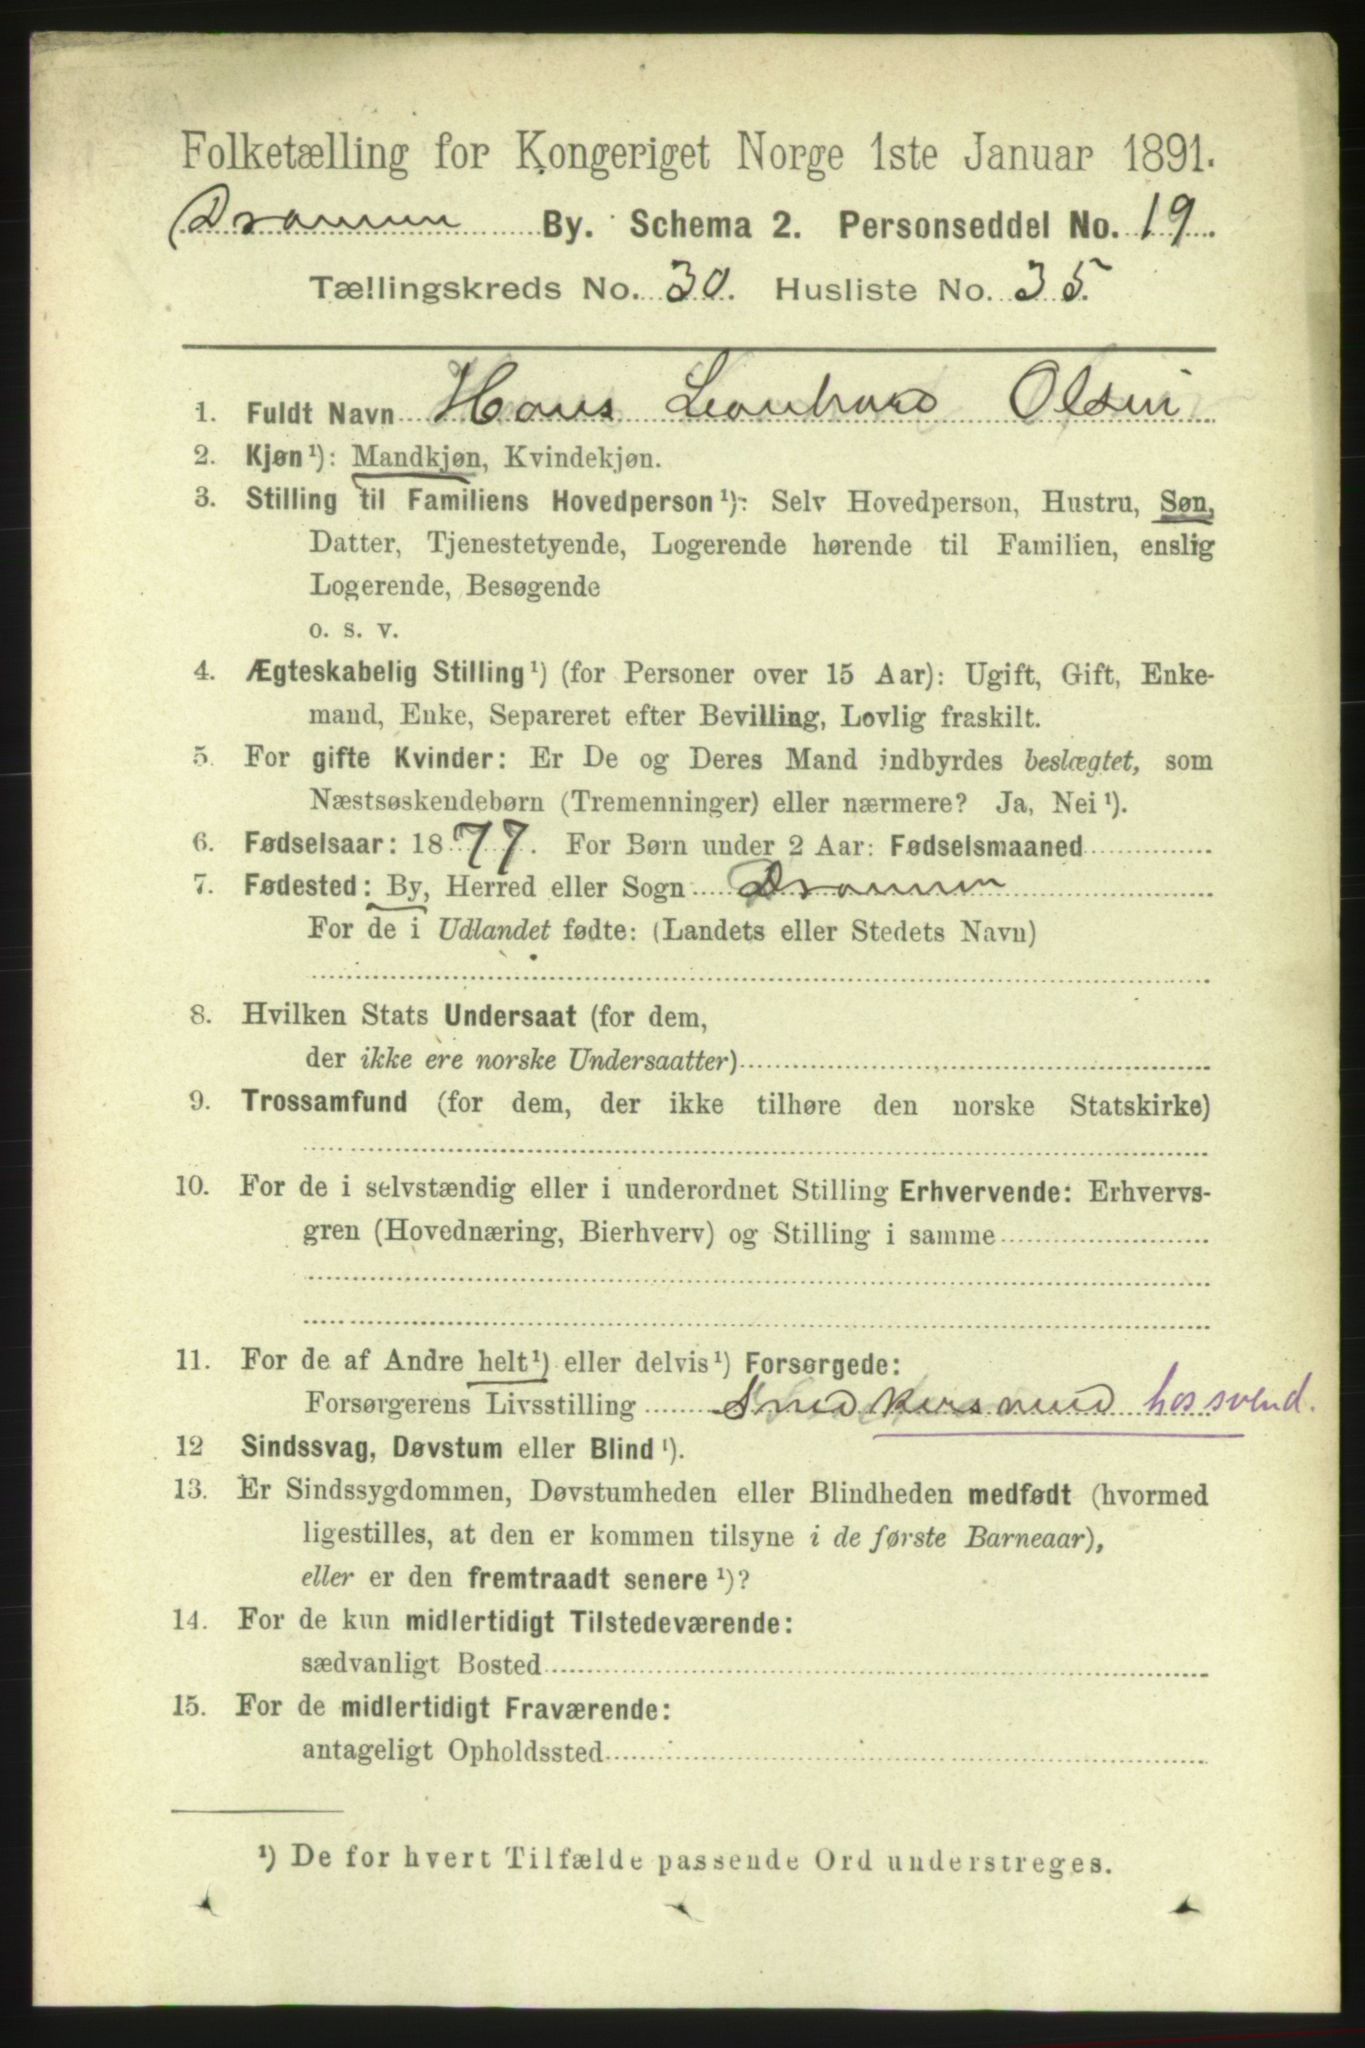 Folketælling for Kongeriget Norge 1ste Januar 1891.
Drammen By. Schema 2. Personseddel No. 19.
Tællingskreds No. 30. Husliste No. 35.
1. Fuldt Navn Hans Leonhard Olsen
2. Kjøn¹): Mandkjøn, Kvindekjøn.
3. Stilling til Familiens Hovedperson¹): Selv Hovedperson, Hustru, Søn,
Datter, Tjenestetyende, Logerende hørende til Familien, enslig
Logerende, Besøgende
o. s. v.
4. Ægteskabelig Stilling¹) (for Personer over 15 Aar): Ugift, Gift, Enke-
mand, Enke, Separeret efter Bevilling, Lovlig fraskilt.
5. For gifte Kvinder: Er De og Deres Mand indbyrdes beslægtet, som
Næstsøskendebørn (Tremenninger) eller nærmere? Ja, Nei¹).
6. Fødselsaar: 1877. For Børn under 2 Aar: Fødselsmaaned
7. Fødested: By, Herred eller Sogn Drammen
For de i Udlandet fødte: (Landets eller Stedets Navn)
8. Hvilken Stats Undersaat (for dem,
der ikke ere norske Undersaatter)
9. Trossamfund (for dem, der ikke tilhøre den norske Statskirke)
10. For de i selvstændig eller i underordnet Stilling Erhvervende: Erhvervs-
gren (Hovednæring, Bierhverv) og Stilling i samme
11. For de af Andre helt¹) eller delvis¹) Forsørgede:
Forsørgerens Livsstilling Snedkersvend hossvend.
12 Sindssvag, Døvstum eller Blind¹).
13. Er Sindssygdommen, Døvstumheden eller Blindheden medfødt (hvormed
ligestilles, at den er kommen tilsyne i de første Barneaar),
eller er den fremtraadt senere¹)?
14. For de kun midlertidigt Tilstedeværende:
sædvanligt Bosted
15. For de midlertidigt Fraværende:
antageligt Opholdssted
¹) De for hvert Tilfælde passende Ord understreges.